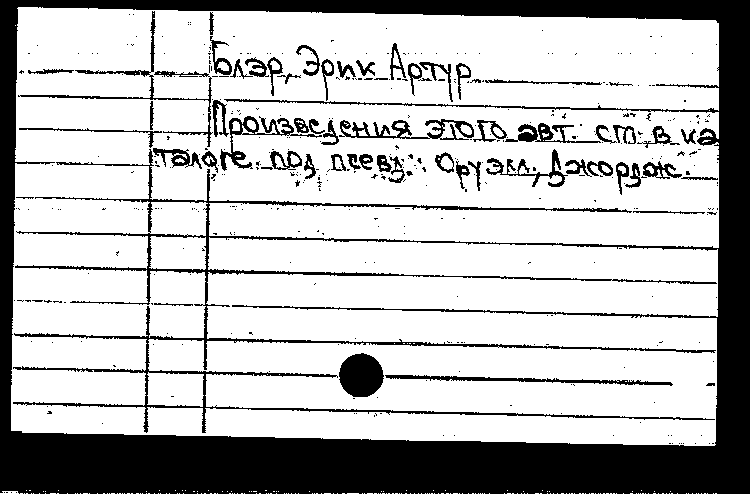 Блэр, Эрик Артур
Произведения этого авт. см. в ка
талоге под псевд.: Оруэлл, Джордж.